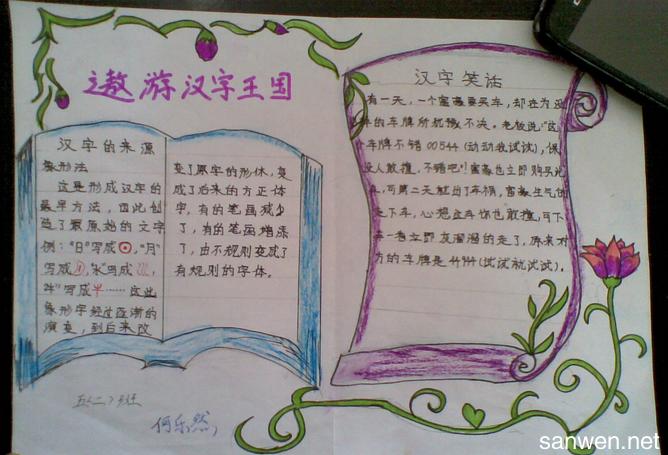 遨游汉字王国
汉字的来源
象形法
这是形成汉字的
最早方法，因此创
造了最原始的文字
例："日"写成 ，"月"
写成 ，"水"写成 ，
"牛"写成 ……这些
象形字经过逐渐的
演变，到后来改
变了原字的形体，变
成了后来的方正体
字，有的笔画减少
了，有的笔画增添
了，由不规则变成了
有规则的字体。
五〈二〉班
何乐然
汉字笑话
有一天，一个富豪要买车，却在为选
车的车牌所犹豫不决。老板说："这
个车牌不错00544（动动我试试），保
没人敢撞，不错吧！"富豪也立即购买此
车，可第二天就出了车祸，富豪生气的
走下车，心想这车你也敢撞，可下
车一看立即灰溜溜的走了，原来对
方的车牌是44944（试试就试试）。
sanwen.net